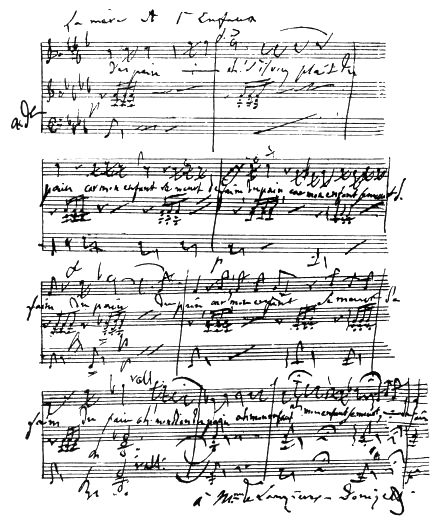 La mère et l'Enfant
Du pain ah! s'il vous plait du
pain car mon enfant se meurt de faim du pain car mon enfant se meurt d
faim du pain du pain car mon enfant se meurt de
rall.
faim du pain ah! du pain ah mon enfant mon enfant se meurt faim
rall.
à Mme de Donizetti